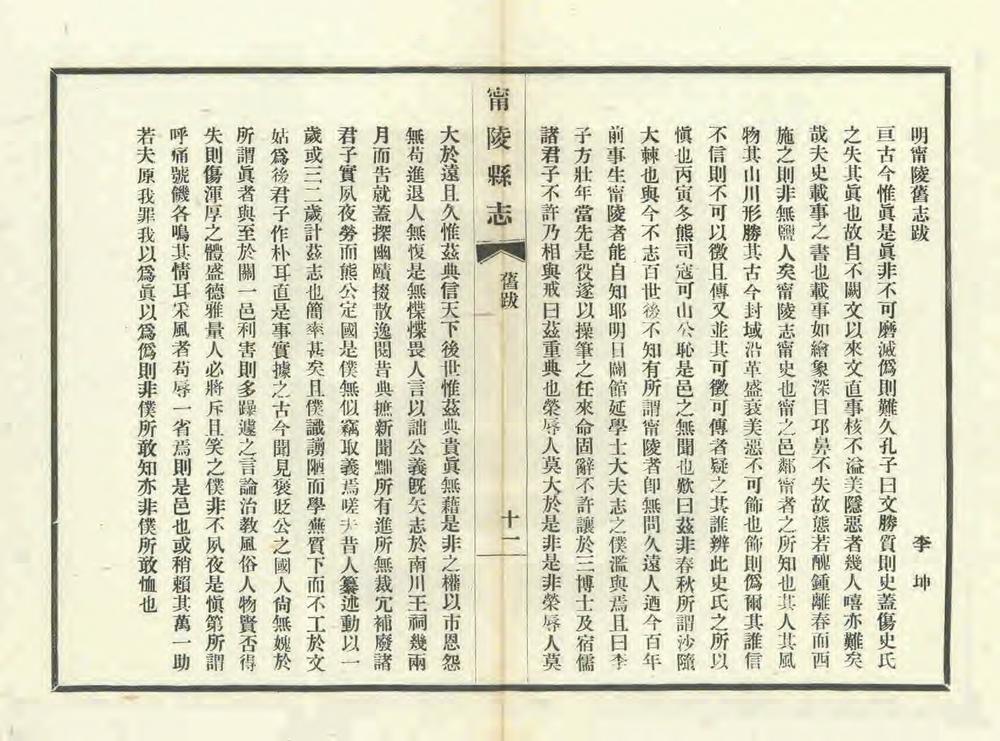 明甯陵舊志跋 李坤
亘古今惟眞是眞非不可磨滅僞則難久孔子曰文勝質則史蓋傷史氏
之失其眞也故自不闕文以來文直事核不溢美隱惡者幾人嘻亦難矣
哉夫史載事之書也載事如繪象深目邛鼻不失故態若醜鍾離春而西
施之則非無鹽人矣甯陵志甯史也甯之邑鄰甯者之所知也其人其風
物其山川形勝其古今封域沿革盛衰美惡不可飾也飾則僞爾其誰信
不信則不可以徵且傳又並其可徵可傳者疑之其誰辨此史氏之所以
愼也丙寅冬熊司寇可山公恥是邑之無聞也歎曰茲非春秋所謂沙隨
大棘也與今不志百世後不知有所謂甯陵者卽無問久遠人迺今百年
前事生甯陵者能自知耶明日闢館延學士大夫志之僕濫與焉且曰李
子方壯年當先是役遂以操筆之任來命固辭不許讓於三博士及宿儒
諸君子不許乃相與戒曰茲重典也榮辱人莫大於是非是非榮辱人莫
甯陵縣志 舊跋 十一
大於遠且久惟茲典信天下後世惟茲典貴眞無藉是非之權以市恩怨
無苟進退人無愎是無惵惵畏人言以詘公義旣矢志於南川王祠幾兩
月而告就蓋探幽賾掇散逸閱昔典摭新聞黜所有進所無裁冗補廢諸
君子實夙夜勞而熊公定國是僕無似竊取義焉嗟夫昔人纂述動以一
歲或三二歲計茲志也簡率甚矣且僕識謭陋而學蕪質下而不工於文
姑爲後君子作朴耳直是事實據之古今聞見褒貶公之國人尙無媿於
所謂眞者與至於關一邑利害則多躁遽之言論治教風俗人物賢否得
失則傷渾厚之體盛德雅量人必將斥且笑之僕非不夙夜是愼第所謂
呼痛號饑各鳴其情耳采風者苟辱一省焉則是邑也或稍賴其萬一助
若夫原我罪我以爲眞以爲僞則非僕所敢知亦非僕所敢恤也